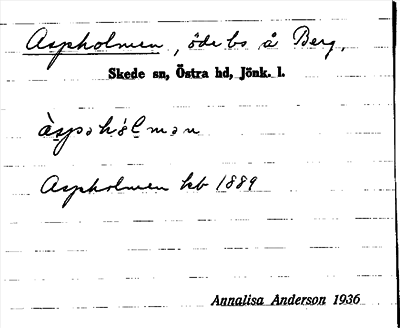 Aspholmen, öde bs å Berg,
Skede sn, Östra hd, Jönk. l.
àspəhólmən
Aspholmen kb 1889
Annalisa Anderson 1936